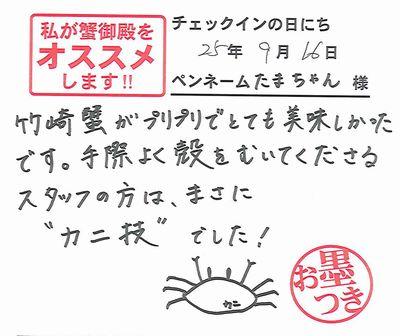 私が蟹御殿を
オススメ
します!!
チェックインの日にち
25年 9月 16日
ペンネーム たまちゃん 様
竹崎蟹がプリプリでとても美味しかった
です。手際よく殻をむいてくださる
スタッフの方は、まさに
"カニ技" でした!
カニ
お墨つき